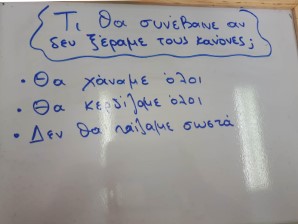 Τι θα συνέβαινε αν
δεν ξέραμε τους κανόνες;
• Θα χάναμε όλοι
• Θα κερδίζαμε όλοι
• Δεν θα παίζαμε σωστά